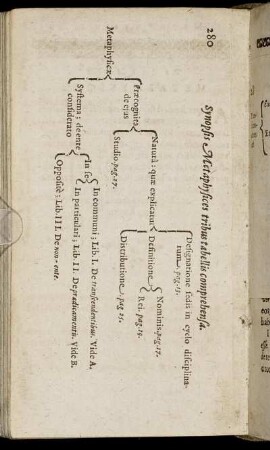 280
Synopsis Metaphysices tribus tabellis comprehensa.
Metaphysicæ
Præcognita
de ejus
Naturâ: quæ explicatur
Designatione sedis in cyclo disciplina-
rum. pag. 15.
Definitione
Nominis. pag. 17.
Rei. pag. 19.
Distributione. pag. 25.
Studio. pag. 27.
Systema: de ente
considerato
In se
In communi; Lib. I. De transcendentibus. Vide A.
In particulari; Lib. II. De prædicamentis. Vide B.
Opposite; Lib. III. De non-ente.